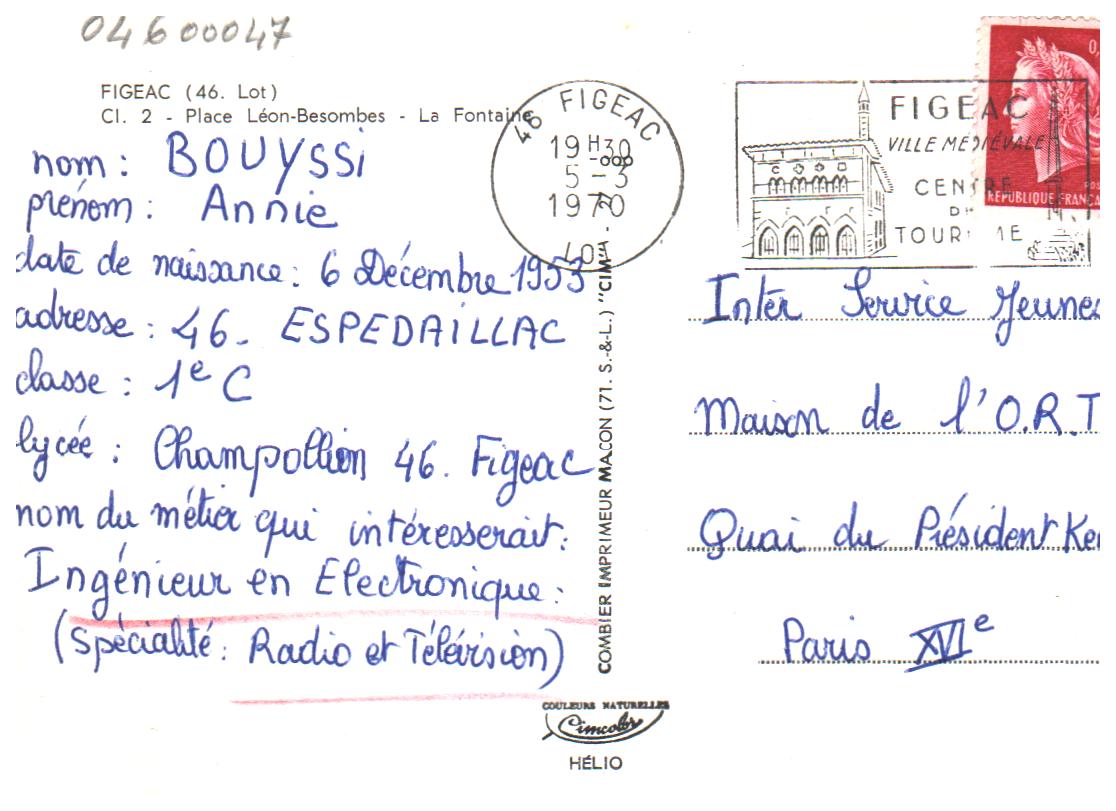 04600047
FIGEAC (46. Lot)
Cl. 2 - Place Léon-Besombes - La Fontaine
nom : BOUYSSi
prénom : Annie
date de naissance : 6 Décembre 1953
adresse : 46 - ESPEDAILLAC
classe : 1e C
lycée : Champollion 46. Figeac
nom du métier qui intéresserait :
Ingénieur en Electronique :
(Spécialité : Radio et Télévision)
46 FIGEAC
19 H 30
5 - 3
1970
LOT
COMBIER IMPRIMEUR MACON (71. S.-&-L.) "CIM"
COULEURS NATURELLES
Cimcolor
HÉLIO
FIGEAC
VILLE MEDIÉVALE
CENTRE
DU
TOURISME
0,
POS
REPUBLIQUE FRANCA
Inter Service Jeunes
Maison de l'O.R.T
Quai du Président Ken
Paris XVIe